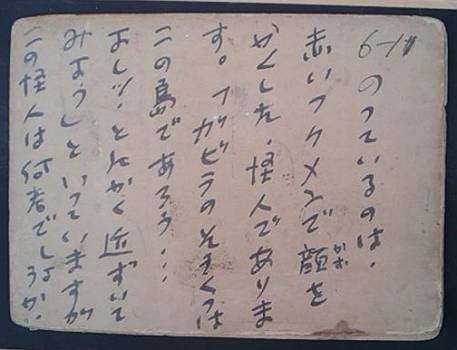 のっているのは、
赤いフクメンで顔を
かお
かくした、怪人でありま
す。「ガビラのそうくつは
この島であろう‥
よしッ とにかく近ずいて
みよう」といっていますが
この怪人は何者でしょうか.